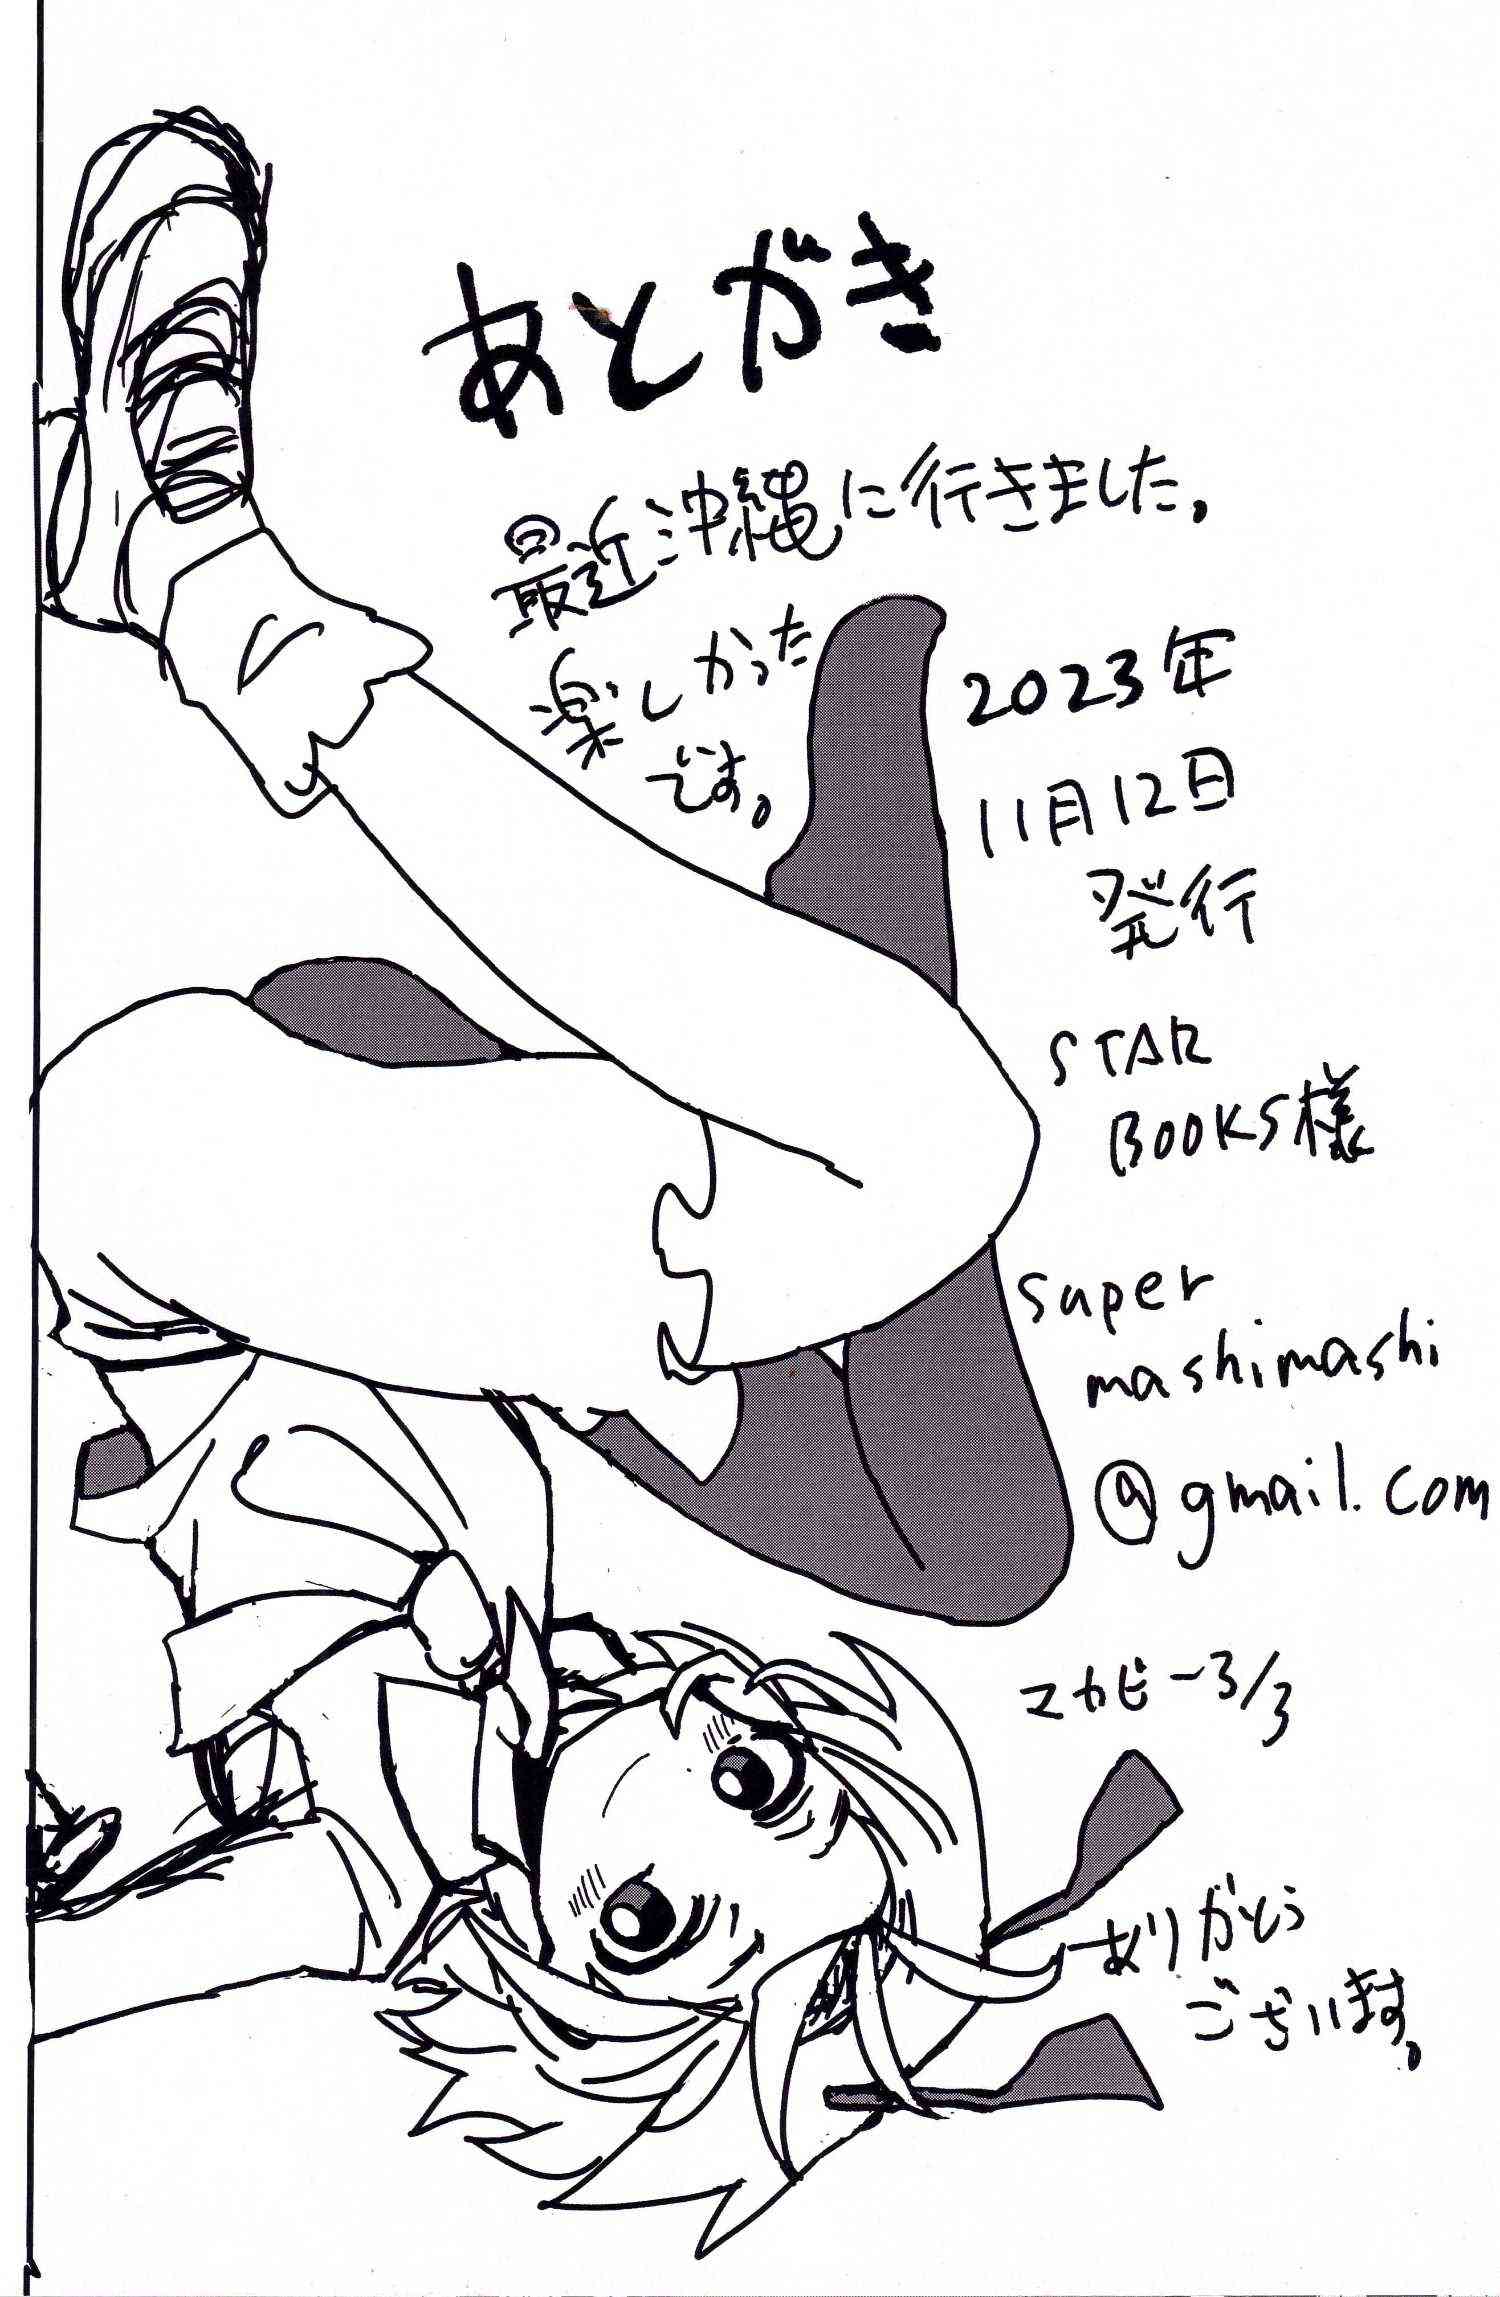 あとがき
最近沖縄に行きました。
楽しかった
です。
2023年
11月12日
発行
STAR
BOOKS様
super
mashimashi
@gmail.com
マカビー3/3
ありがとう
ございます。